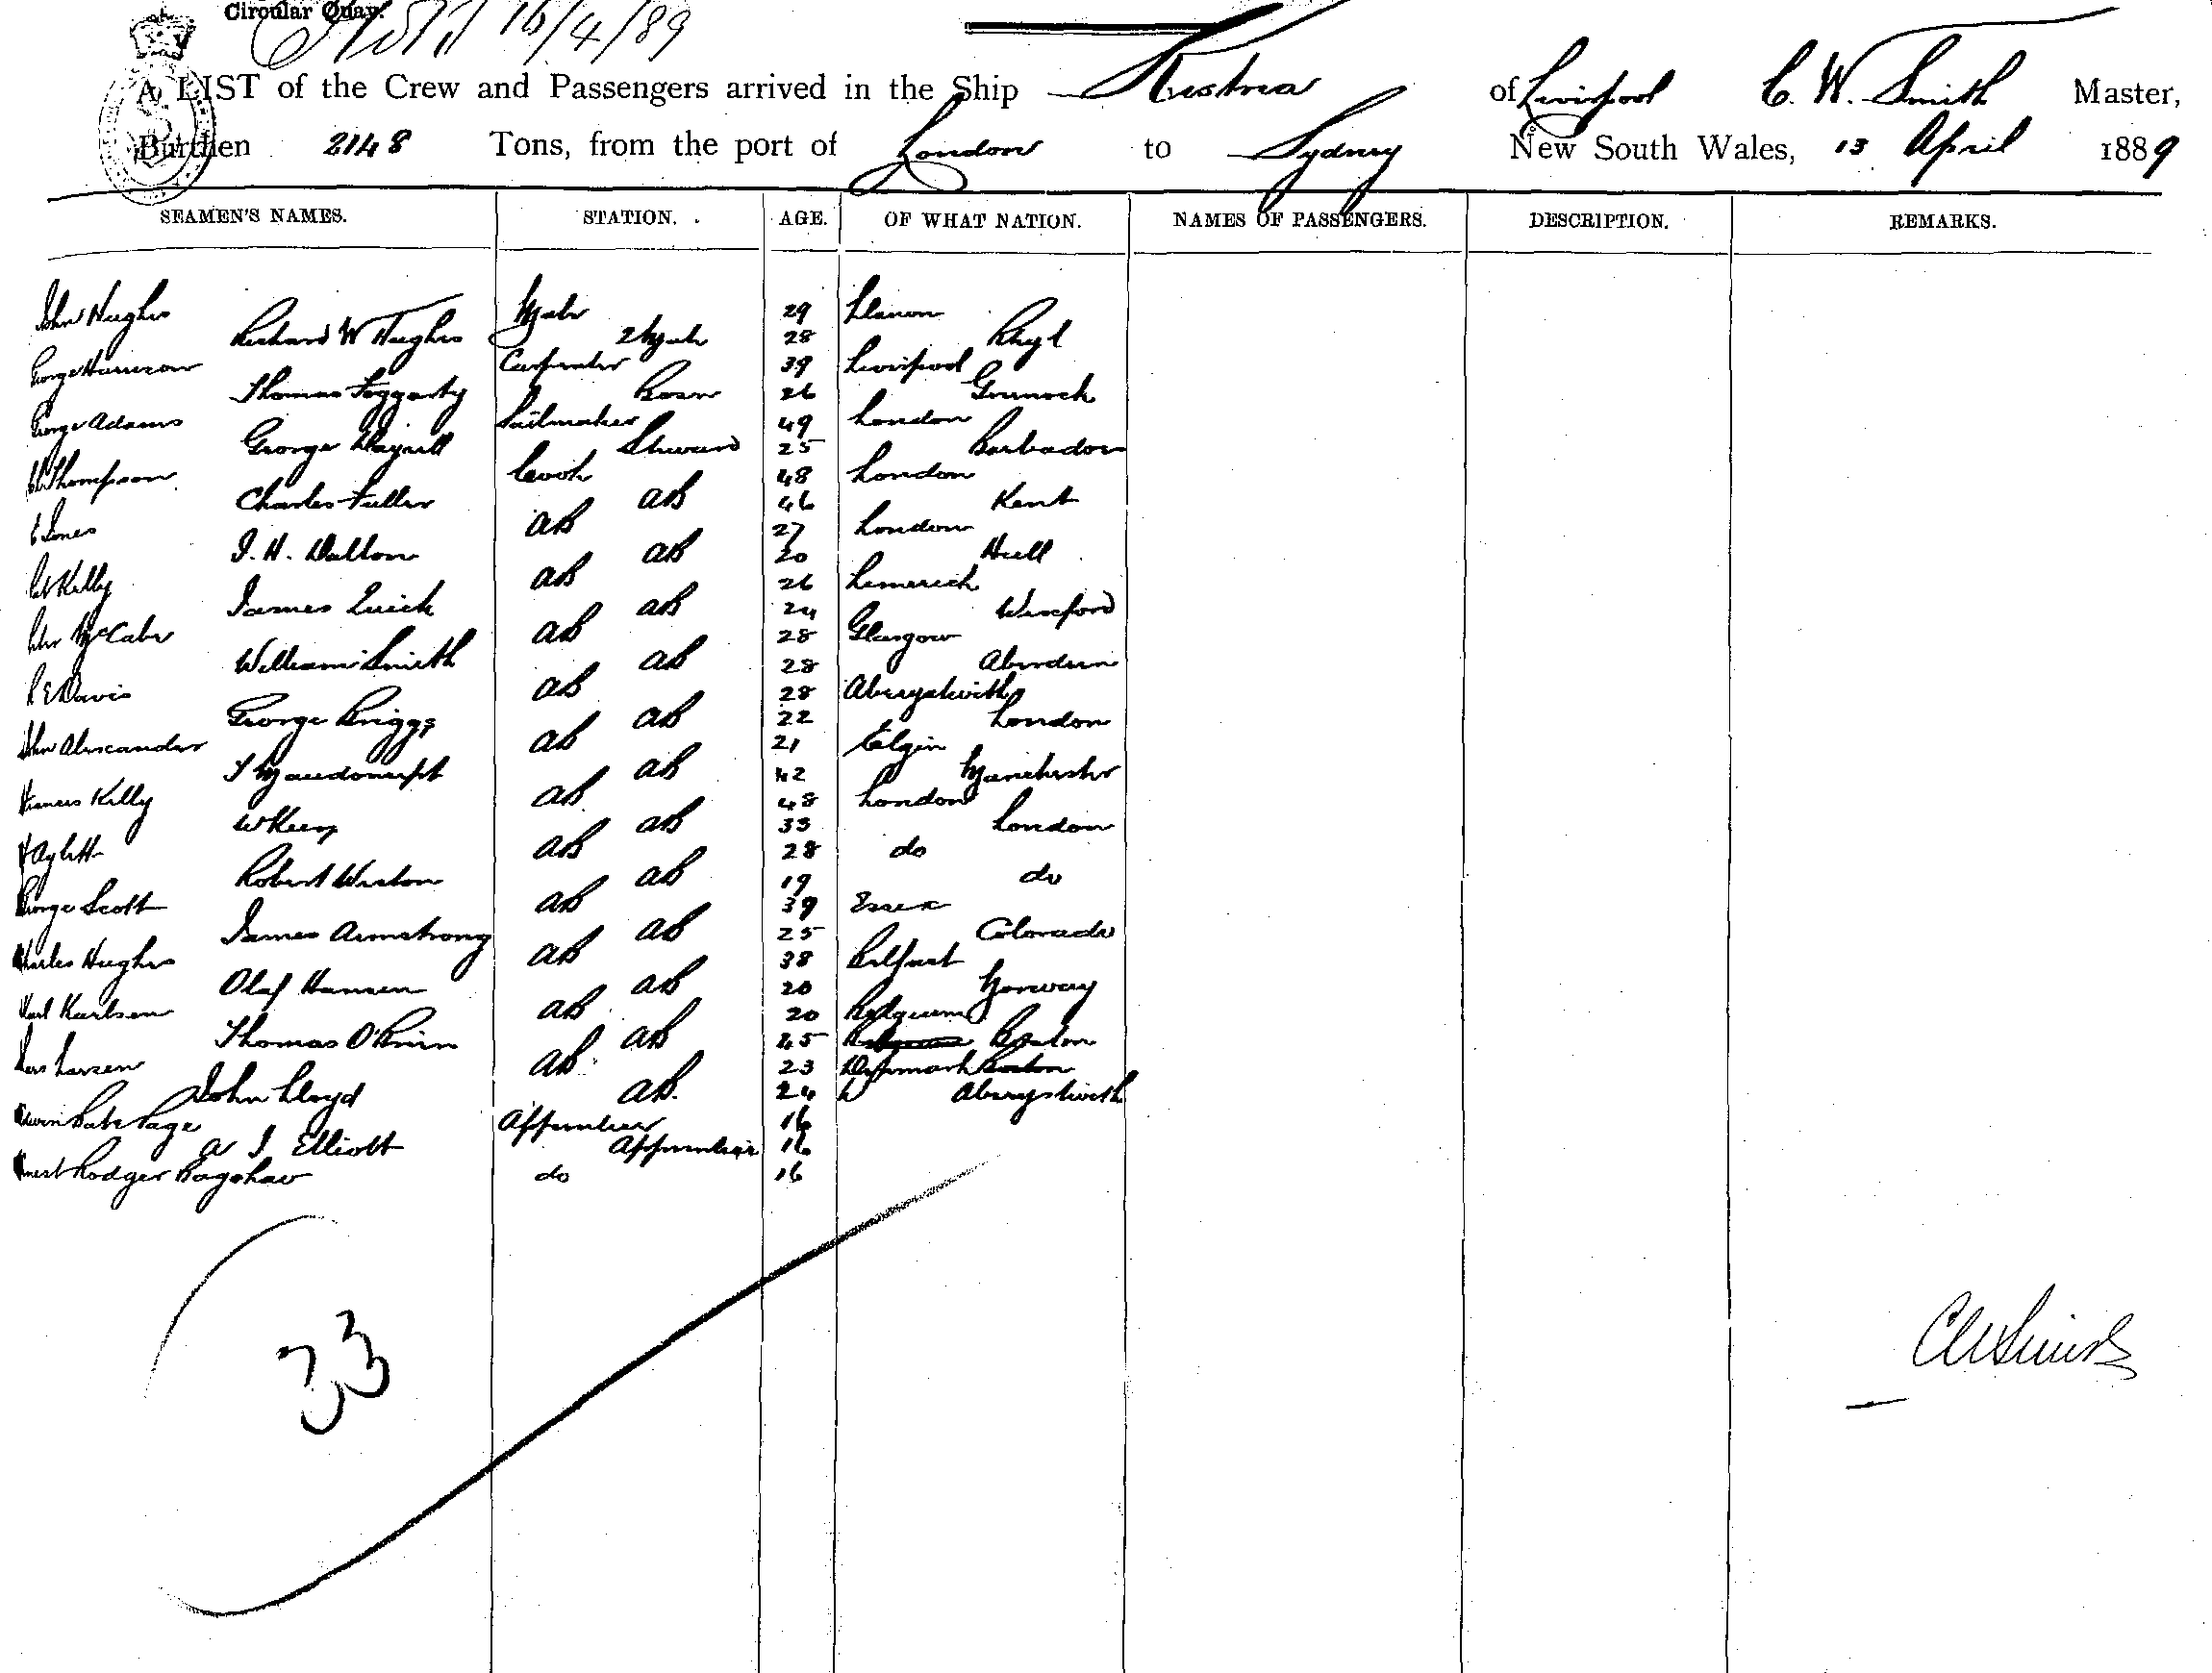 Circular Quay.
16/4/89
A LIST of the Crew and Passengers arrived in the Ship of Liverpool C. W. Smith Master,
Burthen 2148 Tons, from the port of London to Sydney New South Wales, 13 April 1889
SEAMEN'S NAMES. STATION. AGE. OF WHAT NATION. NAMES OF PASSENGERS. DESCRIPTION. REMARKS.
John Hughes Mate 29 Llanon
Richard W Hughes 2 Mate 28 Rhyl
George Harrison Carpenter 39 Liverpool
Thomas Foggarty Bosn 26 Greenock
George Adams Sailmaker 49 London
George Steward 25 Barbados
Thompson Cook 48 London
Charles Fuller AB 46 Kent
E Jones AB 27 London
J. H. Dalton AB 20 Hull
Kelly AB 26 Limerick
James Quick AB 24 Wexford
McCabe AB 28 Glasgow
William Smith AB 28 Aberdeen
R E Davis AB 28 Aberystwith
George Briggs AB 22 London
John Alexander AB 21 Elgin
AB 42 Manchester
Francis Kelly AB 48 London
W Keen AB 33 London
Aylett AB 28 do
Robert Weston AB 19 do
George Scott AB 39 Essex
James Armstrong AB 25 Colorado
Charles Hughes AB 38 Belfast
Olaf Hansen AB 20 Norway
Karl Karlsen AB 20 Belgium
Thomas O'Brien AB 25 Boston
Lars Larsen AB 23 Denmark
John Lloyd AB. 24 Aberystwith
Edwin Bate Page Apprentice 16
A J Elliott Apprentice 16
Ernest Rodger Bagshaw do 16
33
CWSmith